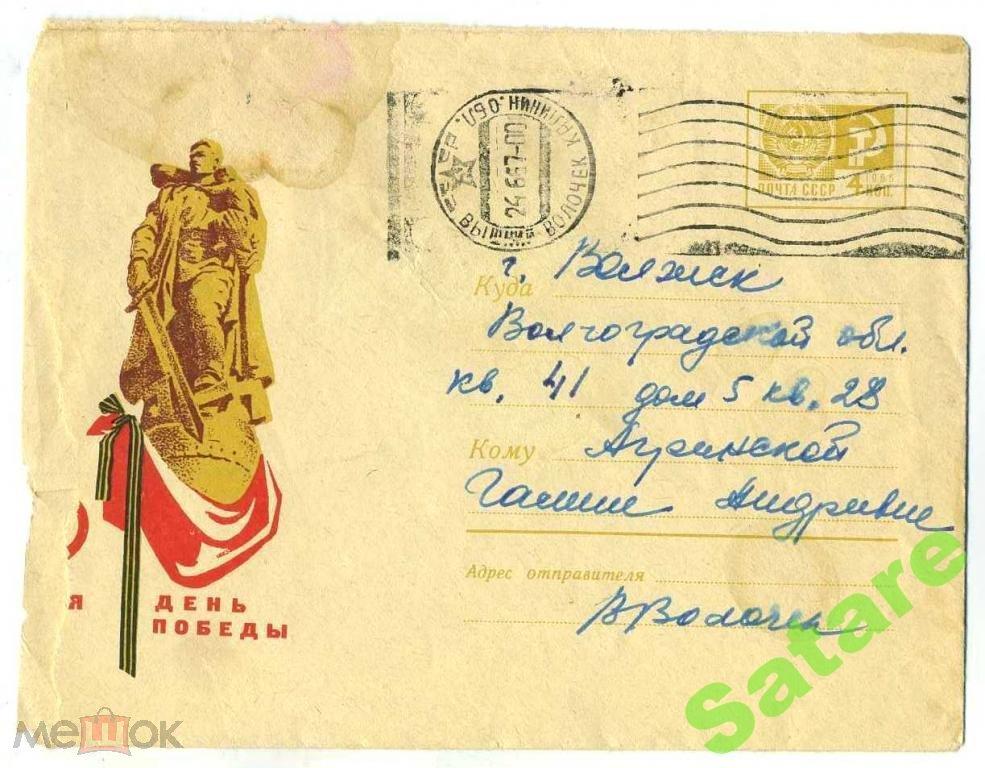 СССР ВЫШНИЙ ВОЛОЧЕК КАЛИНИН. ОБЛ.
24 6 67-00
ПОЧТА СССР
4 КОП.
1966
Куда г. Волжск
Волгоградской обл.
кв. 41 дом 5 кв. 28
Кому Агринской
Галине Андривне
Адрес отправителя
В Волочек
Я
ДЕНЬ
ПОБЕДЫ
мешок
Satare